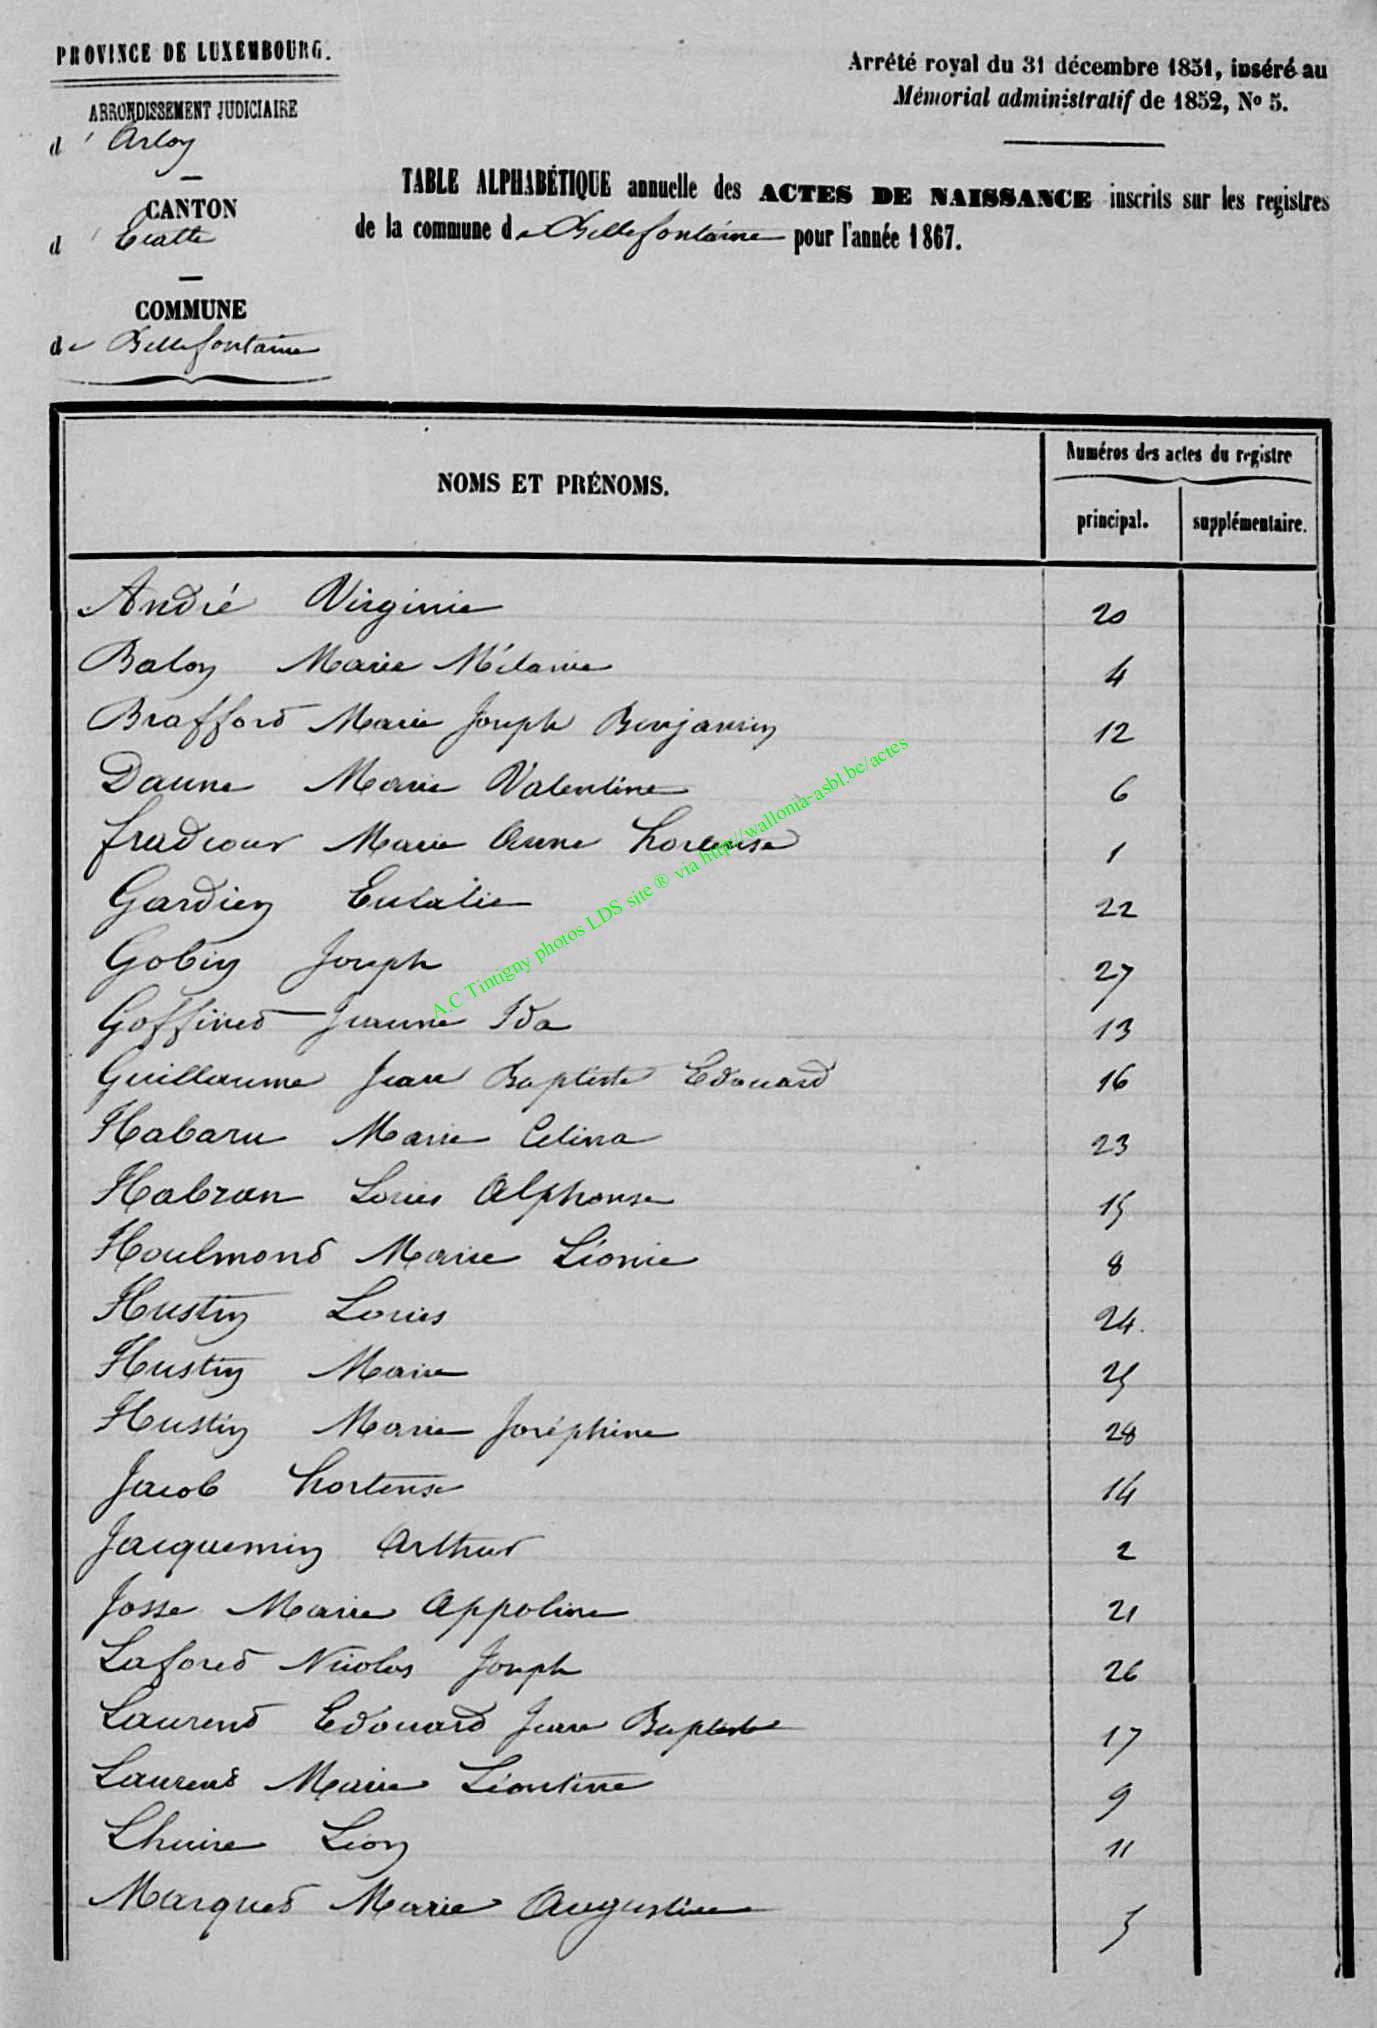 PROVINCE DE LUXEMBOURG.
ARRONDISSEMENT JUDICIAIRE
d'Arlon
CANTON
d'Etalle
COMMUNE
de Bellefontaine
Arrêté royal du 31 décembre 1851, inséré au
Mémorial administratif de 1852, No 5.
TABLE ALPHABÉTIQUE annuelle des ACTES DE NAISSANCE inscrits sur les registres
de la commune de Bellefontaine pour l'année 1867.
NOMS ET PRÉNOMS.
Numéros des actes du registre
principal. supplémentaire.
André Virginie 20
Balon Marie Mélanie 4
Brafford Marie Joseph Benjamin 12
Daune Marie Valentine 6
fradcour Marie Anne hortense 1
Gardien Eulalie 22
Gobin Joseph 27
Goffined Jeanne Ida 13
Guillaume Jean Baptiste Edouard 16
Habaru Marie Celina 23
Habran Louis Alphonse 15
Houlmond Marie Léonie 8
Hustin Louis 24.
Hustin Marie 25
Hustin Marie Joséphine 28
Jacob hortense 14
Jacquemin Arthur 2
Josse Marie Appoline 21
Lafored Nicolas Joseph 26
Laurend Edouard Jean Baptiste 17
Laurend Marie Léontine 9
Lhuire Léon 11
Marqued Marie Augustine 5
A.C Tintigny photos LDS site ® via http://wallonia-asbl.be/actes